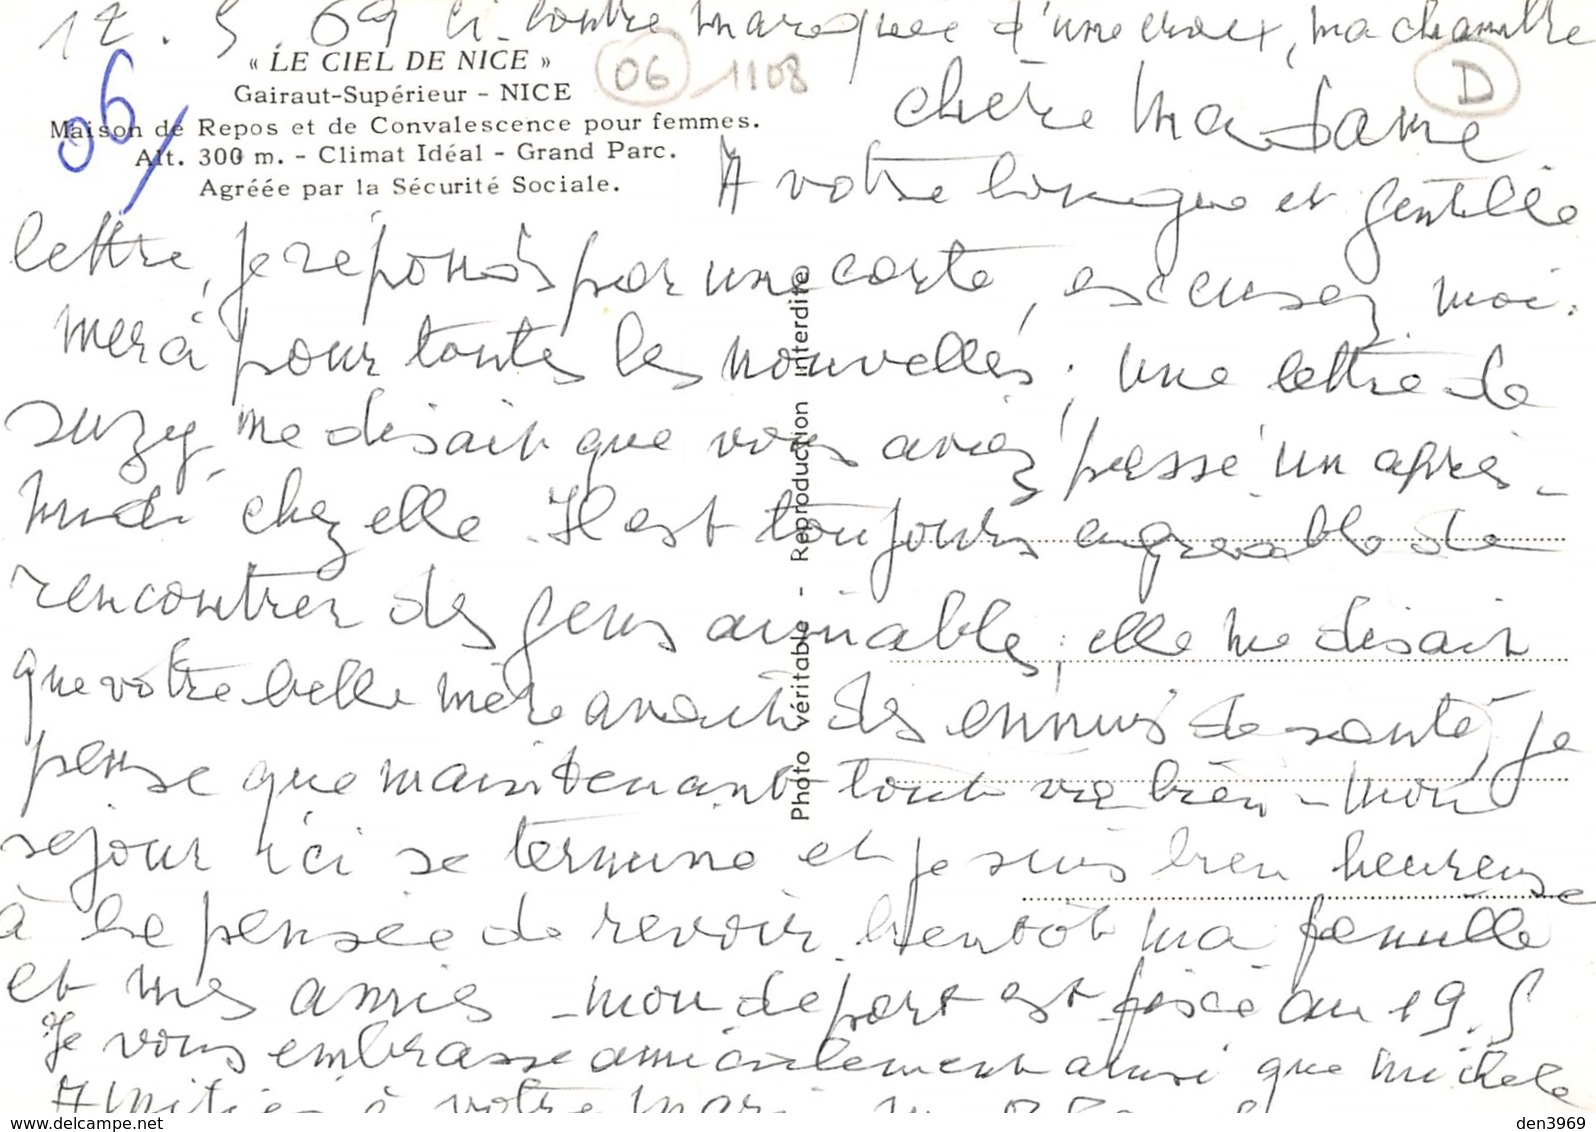 12.5.69 Ci-contre marquée d'une croix, ma chambre
« LE CIEL DE NICE »
Gairaut-Supérieur - NICE
Maison de Repos et de Convalescence pour femmes.
Alt. 300 m. - Climat Idéal - Grand Parc.
Agréée par la Sécurité Sociale.
06
06 1108
D
Chère Madame
A votre longue et gentille
lettre, je réponds par une carte, excusez moi.
merci pour toutes les nouvelles. Une lettre de
Suzy, me disait que vous aviez passé un après-
midi chez elle. Il est toujours agréable de
rencontrer des gens aimables, elle me disait
que votre belle mère avait des ennuis de santé, je
pense que maintenant tout va bien - mon
séjour ici se termine et je suis bien heureuse
à la pensée de revoir bientôt ma famille
et mes amis - mon départ est fixé au 19.5
Je vous embrasse amicalement ainsi que michele
Amitiés à votre mari
Photo véritable - Reproduction interdite
www.delcampe.net
den3969